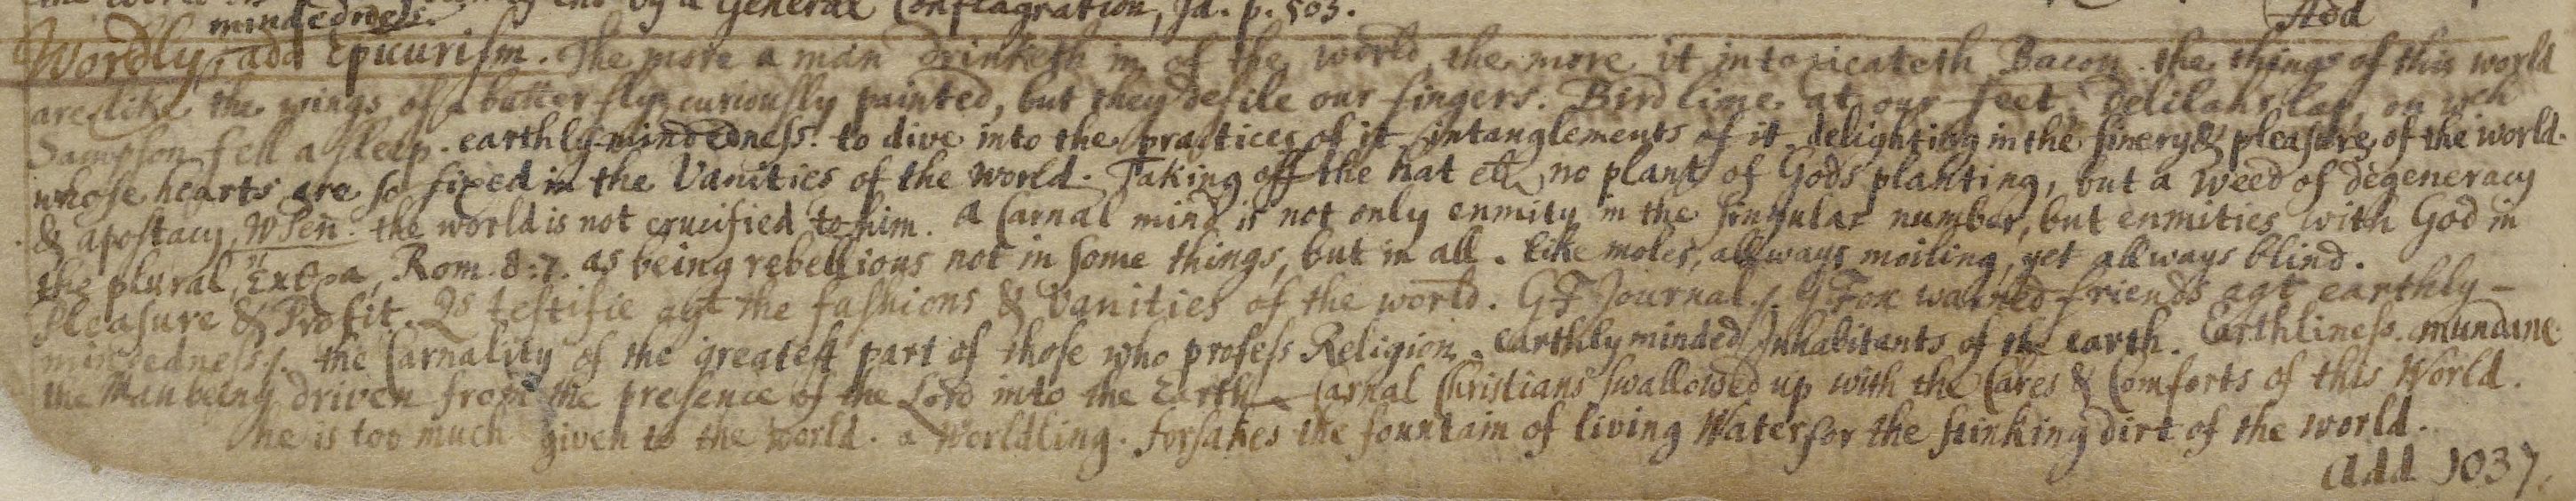 General Conflagration, Id. p. 503.
mindedness. Add
Wordly, add Epicurism. The more a man drinketh in of the world, the more it intoxicateth Bacon. the things of this world
are like the wings of a butterfly, curiously painted, but they defile our fingers. Birdlime at our feet. Delilahs lap, on wch
Sampson fell a sleep. earthly-mindedness. to dive into the practices of it intanglements of it delighting in the finery & pleasure of the world.
whose hearts are so fixed in the Vanities of the world. Taking off the hat etc no plant of Gods planting, but a weed of degeneracy
& apostacy, WPen. the world is not crucified to him. a Carnal mind is not only enmity in the singular number, but enmities with God in
the plural, Rom. 8:7. as being rebellious not in some things, but in all. like moles, allways moiling, yet allways blind.
Pleasure & Profit. Qs testifie agt the fashions & Vanities of the world. GF Journal. GFox warned friends agt earthly-
mindedness. the Carnality of the greatest part of those who profess Religion. earthly minded Inhabitants of the earth. Earthliness. mundane
the Man being driven from the presence of the Lord into the Earth Carnal Christians swallowed up with the Cares & Comforts of this World.
he is too much given to the world. a Worldling. forsakes the fountain of living Water for the stinking dirt of the world.
Add 1037.